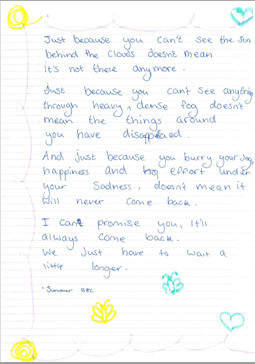 Just because you can't see the sun
behind the clouds doesn't mean
it's not there anymore.
Just because you can't see anything
through heavy, dense fog doesn't
mean the things around
you have disappeared.
And just because you burry your joy,
happiness and effort under
your sadness, doesn't mean it
will never come back.
I can't promise you, it'll
always come back.
We just have to wait a
little longer.
- Summer